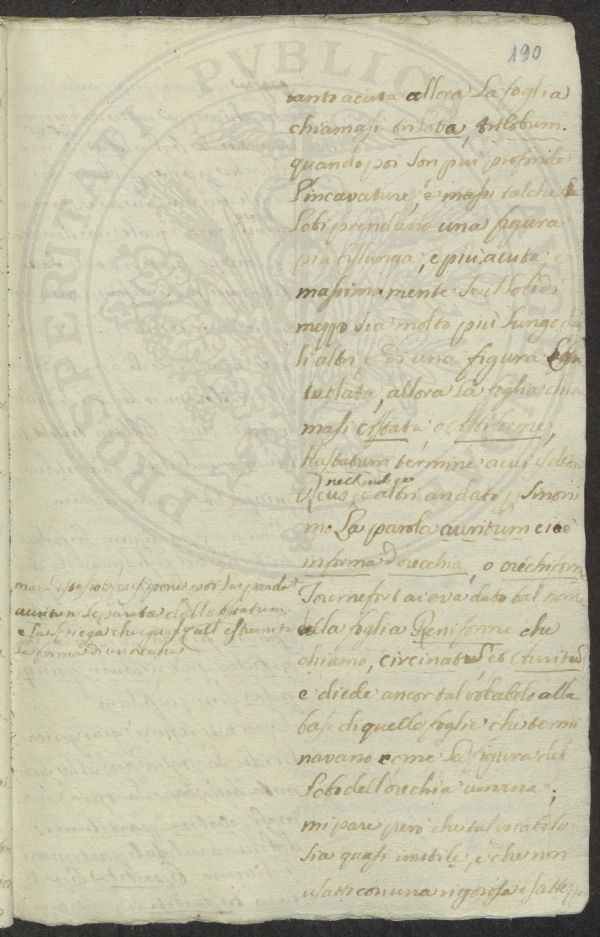 190
tanto acuta allora La foglia
chiamasi trilobata, trilobum.
quando poi son più profonde
l'incavature, e massi talche Le
Lobi prendano una figura
più bislunga, e più acuta
massimamente se il Lobo di
mezzo sia molto più lungo de
li altri e di una figura
allora La foglia chia
masi astata, o astiforme,
Hastatum termine a cui
altri an dato p Sinoni
mo La parola auritum cioè
in forma d'orecchia, o orechiforme
Tournefort aveva dato tal nome
alla foglia Reniforme che
chiamò, circinatum et Auritum
e diede ancor tal vocabolo alla
base di quelle foglie che termi
navano come La figura del
Lobo dell'orechia umana;
mi pare però che tal vocabolo
sia quasi inutile, e che non
una rigorosa
ma
auritum separata dall'astatum
e la spiega che all'estremità
la forma di un'orechia
PROSPERITATI PUBLICAE